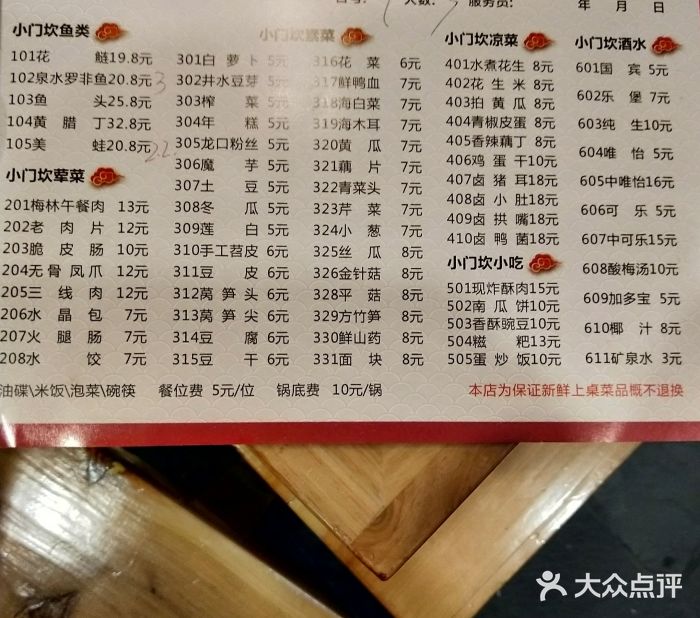 台号: 人数: 服务员: 年 月 日
小门坎鱼类
101花 鲢19.8元
102泉水罗非鱼20.8元 3
103鱼 头25.8元
104黄 腊 丁32.8元
105美 蛙20.8元 2.2
小门坎荤菜
201梅林午餐肉 13元
202老 肉 片 12元
203脆 皮 肠 10元
204无 骨 凤 爪 12元
205三 线 肉 12元
206水 晶 包 7元
207火 腿 肠 7元
208水 饺 7元
小门坎素菜
301白 萝 卜 5元
302井水豆芽 5元
303榨 菜 5元
304年 糕 5元
305龙口粉丝 5元
306魔 芋 5元
307土 豆 5元
308冬 瓜 5元
309莲 白 5元
310手工苕皮 6元
311豆 皮 6元
312莴 笋 头 6元
313莴 笋 尖 6元
314豆 腐 6元
315豆 干 6元
316花 菜 6元
317鲜鸭血 7元
318海白菜 7元
319海木耳 7元
320黄 瓜 7元
321藕 片 7元
322青菜头 7元
323芹 菜 7元
324小 葱 7元
325丝 瓜 8元
326金针菇 8元
328平 菇 8元
329方竹笋 8元
330鲜山药 8元
331面 块 8元
小门坎凉菜
401水煮花生 8元
402花 生 米 8元
403拍 黄 瓜 8元
404青椒皮蛋 8元
405香辣藕丁 8元
406鸡 蛋 干10元
407卤 猪 耳18元
408卤 小 肚18元
409卤 拱 嘴18元
410卤 鸭 菌18元
小门坎小吃
501现炸酥肉15元
502南 瓜 饼10元
503香酥豌豆10元
504糍 粑13元
505蛋 炒 饭10元
小门坎酒水
601国 宾 5元
602乐 堡 7元
603纯 生10元
604唯 怡 5元
605中唯怡16元
606可 乐 5元
607中可乐15元
608酸梅汤10元
609加多宝 5元
610椰 汁 8元
611矿泉水 3元
油碟\米饭\泡菜\碗筷 餐位费 5元/位 锅底费 10元/锅
本店为保证新鲜上桌菜品概不退换
大众点评